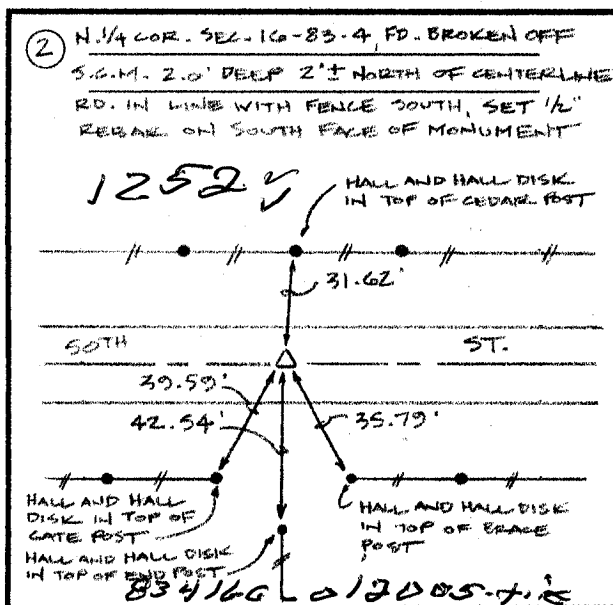 2 N. 1/4 COR. SEC. 16-83-4, FD. BROKEN OFF
S.G.M. 2.0' DEEP 2'± NORTH OF CENTERLINE
RD. IN LINE WITH FENCE SOUTH, SET 1/2"
REBAR ON SOUTH FACE OF MONUMENT
1252
HALL AND HALL DISK
IN TOP OF CEDAR POST
31.62'
50TH ST.
39.59'
42.54'
35.79'
HALL AND HALL
DISK IN TOP OF
GATE POST
HALL AND HALL DISK
IN TOP OF END POST
HALL AND HALL DISK
IN TOP OF BRACE
POST